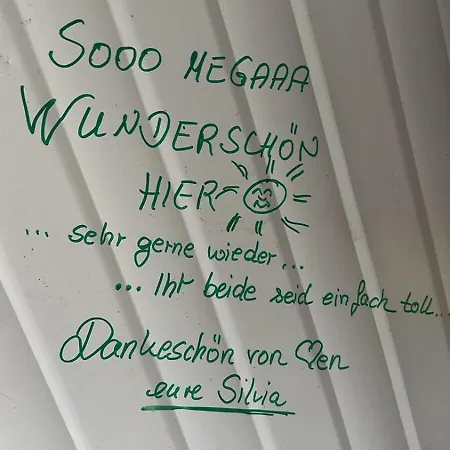 Sooo MEGAAA
WUNDERSCHÖN
HIER
... sehr gerne wieder...
... Ihr beide seid einfach toll...
Dankeschön von
eure Silvia